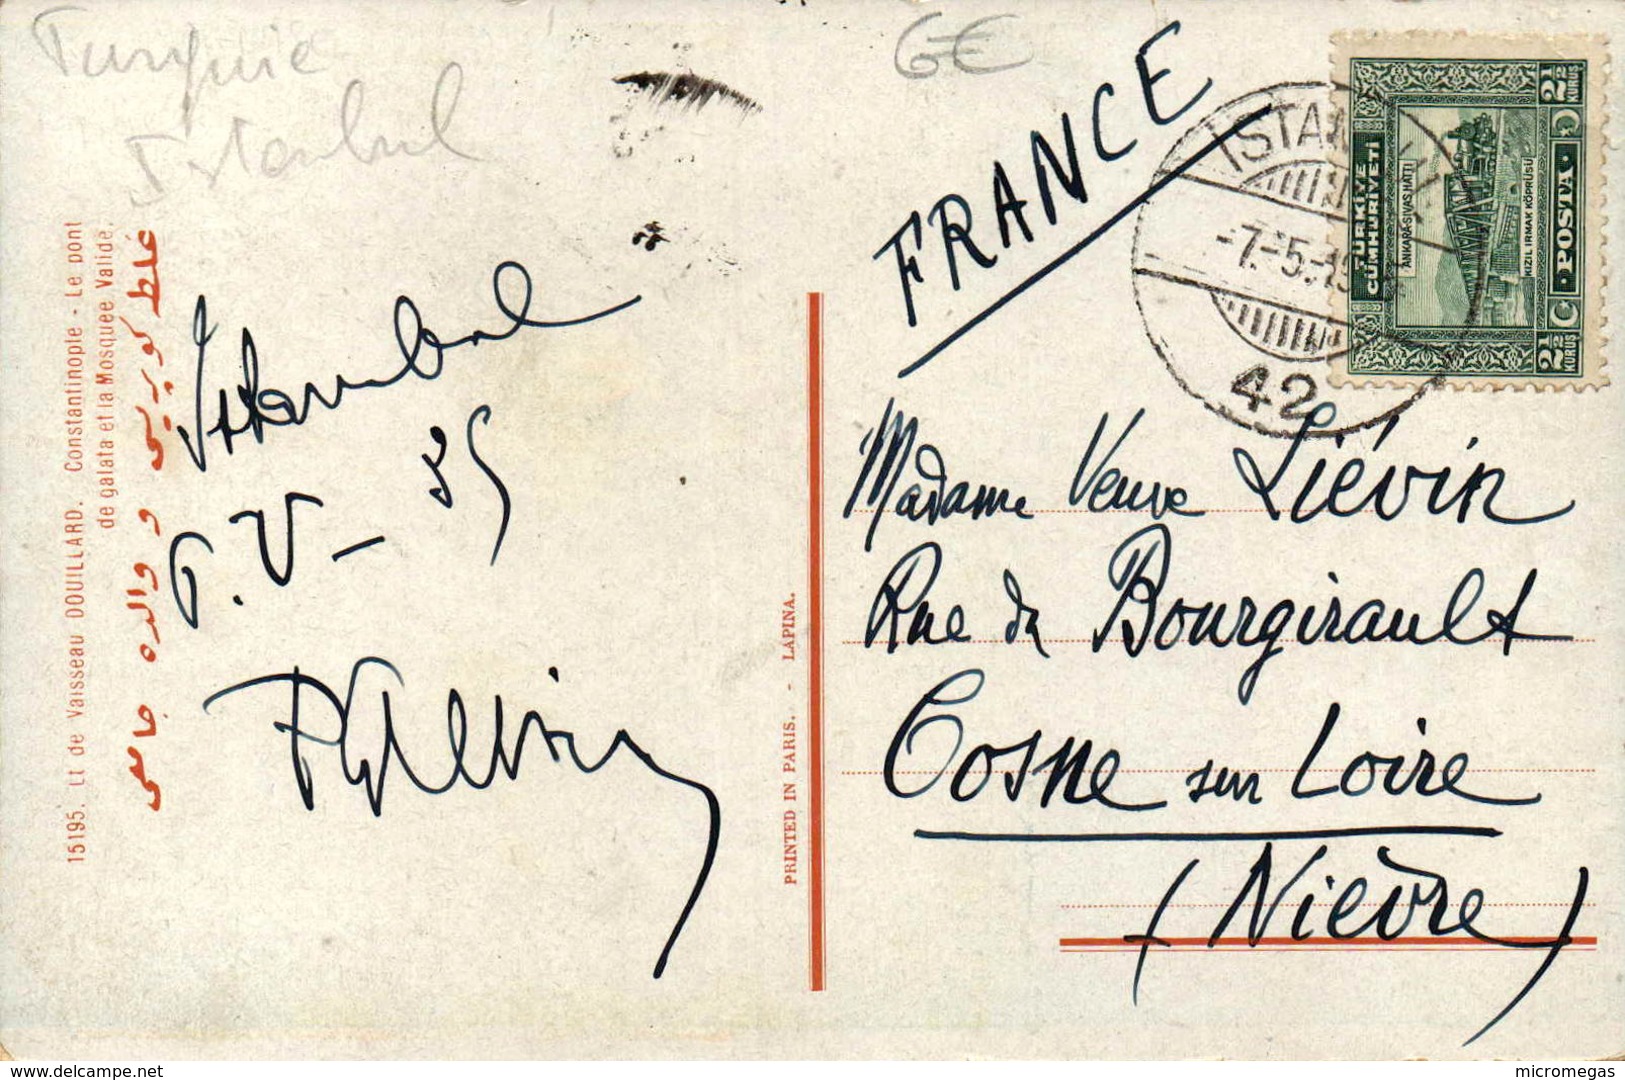 Turquie
Istanbul
6€
FRANCE
ISTANBUL
-7.-5.-19
42
TÜRKİYE
CUMHURİYETİ
ANKARA-SIVAS HATTI
KIZIL IRMAK KÖPRÜSÜ
POSTA
2½ KURUŞ
2½ KURUŞ
15195. Lt de Vaisseau DOUILLARD. Constantinople - Le pont
de galata et la Mosquee Valide.
غلطه كوپريسى و والده جامعى
Istambul
6.V-35
PRINTED IN PARIS. - LAPINA.
Madame Veuve Liévin
Rue du Bourgirault
Cosne sur Loire
(Nièvre)
delcampe.net
micromegas